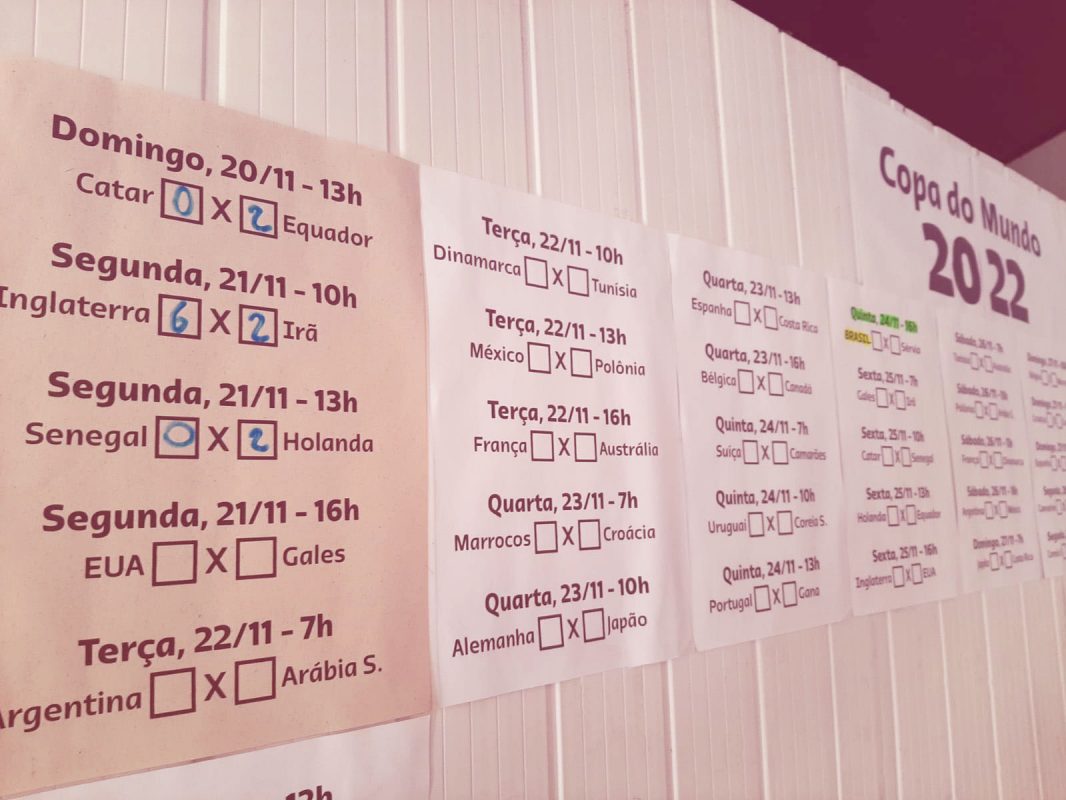 Domingo, 20/11 - 13h
Catar 0 X 2 Equador
Segunda, 21/11 - 10h
Inglaterra 6 X 2 Irã
Segunda, 21/11 - 13h
Senegal 0 X 2 Holanda
Segunda, 21/11 - 16h
EUA X Gales
Terça, 22/11 - 7h
Argentina X Arábia S.
12h
Terça, 22/11 - 10h
Dinamarca X Tunísia
Terça, 22/11 - 13h
México X Polônia
Terça, 22/11 - 16h
França X Austrália
Quarta, 23/11 - 7h
Marrocos X Croácia
Quarta, 23/11 - 10h
Alemanha X Japão
Quarta, 23/11 - 13h
Espanha X Costa Rica
Quarta, 23/11 - 16h
Bélgica X Canadá
Quinta, 24/11 - 7h
Suíça X Camarões
Quinta, 24/11 - 10h
Uruguai X Coreia S.
Quinta, 24/11 - 13h
Portugal X Gana
Copa do Mundo
2022
Quinta, 24/11 - 16h
BRASIL X Sérvia
Sexta, 25/11 - 7h
Gales X Irã
Sexta, 25/11 - 10h
Catar X Senegal
Sexta, 25/11 - 13h
Holanda X Equador
Sexta, 25/11 - 16h
Inglaterra X EUA
Sábado, 26/11 - 7h
Sábado, 26/11
Sábado, 26/11
França X Dinamarca
Sábado, 26/11
Argentina X México
Domingo, 27/11 - 7h
Japão X Costa Rica